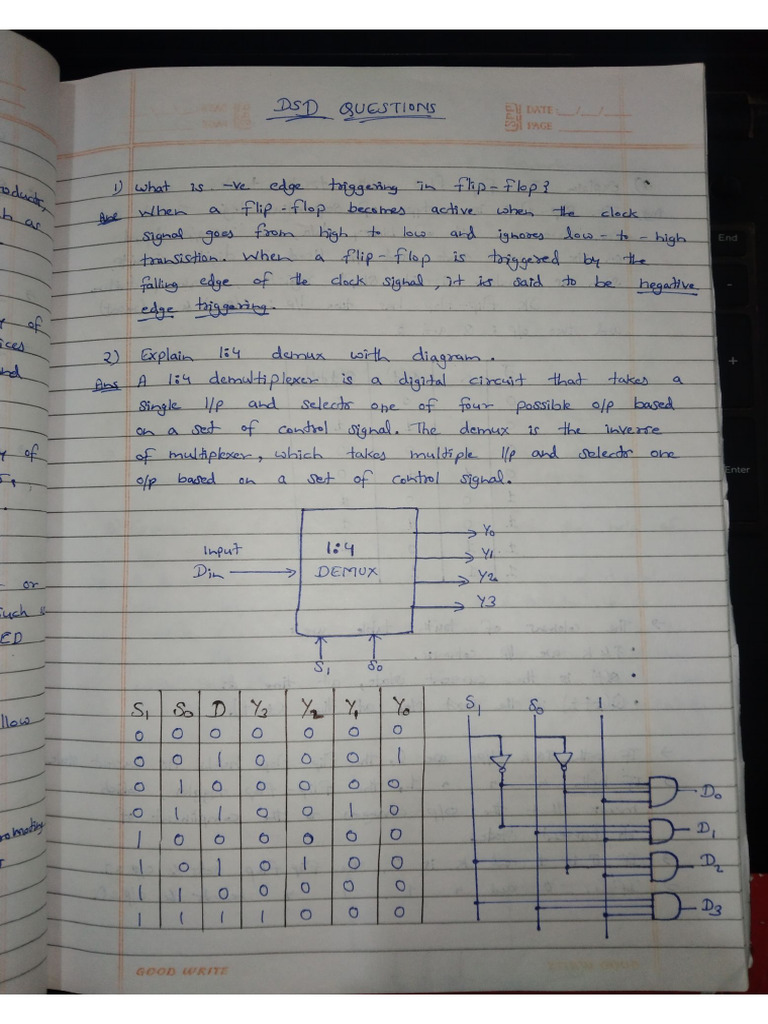 DSD QUESTIONS
DATE:__/__/__
PAGE
1) What is -ve edge triggering in flip-flop?
Ans When a flip-flop becomes active when the clock
signal goes from high to low and ignores low-to-high
transistion. When a flip-flop is triggered by the
falling edge of the clock signal, it is said to be negative
edge triggering.
2) Explain 1:4 demux with diagram.
Ans A 1:4 demultiplexer is a digital circuit that takes a
single I/p and selects one of four possible o/p based
on a set of control signal. The demux is the inverse
of multiplexer, which takes multiple I/p and selects one
o/p based on a set of control signal.
Input
Din
1:4
DEMUX
Y0
Y1
Y2
Y3
S1 S0
S1 S0 D Y3 Y2 Y1 Y0
0 0 0 0 0 0 0
0 0 1 0 0 0 1
0 1 0 0 0 0 0
0 1 1 0 0 1 0
1 0 0 0 0 0 0
1 0 1 0 1 0 0
1 1 0 0 0 0 0
1 1 1 1 0 0 0
S1 S0 1
D0
D1
D2
D3
GOOD WRITE
End
-
+
Enter